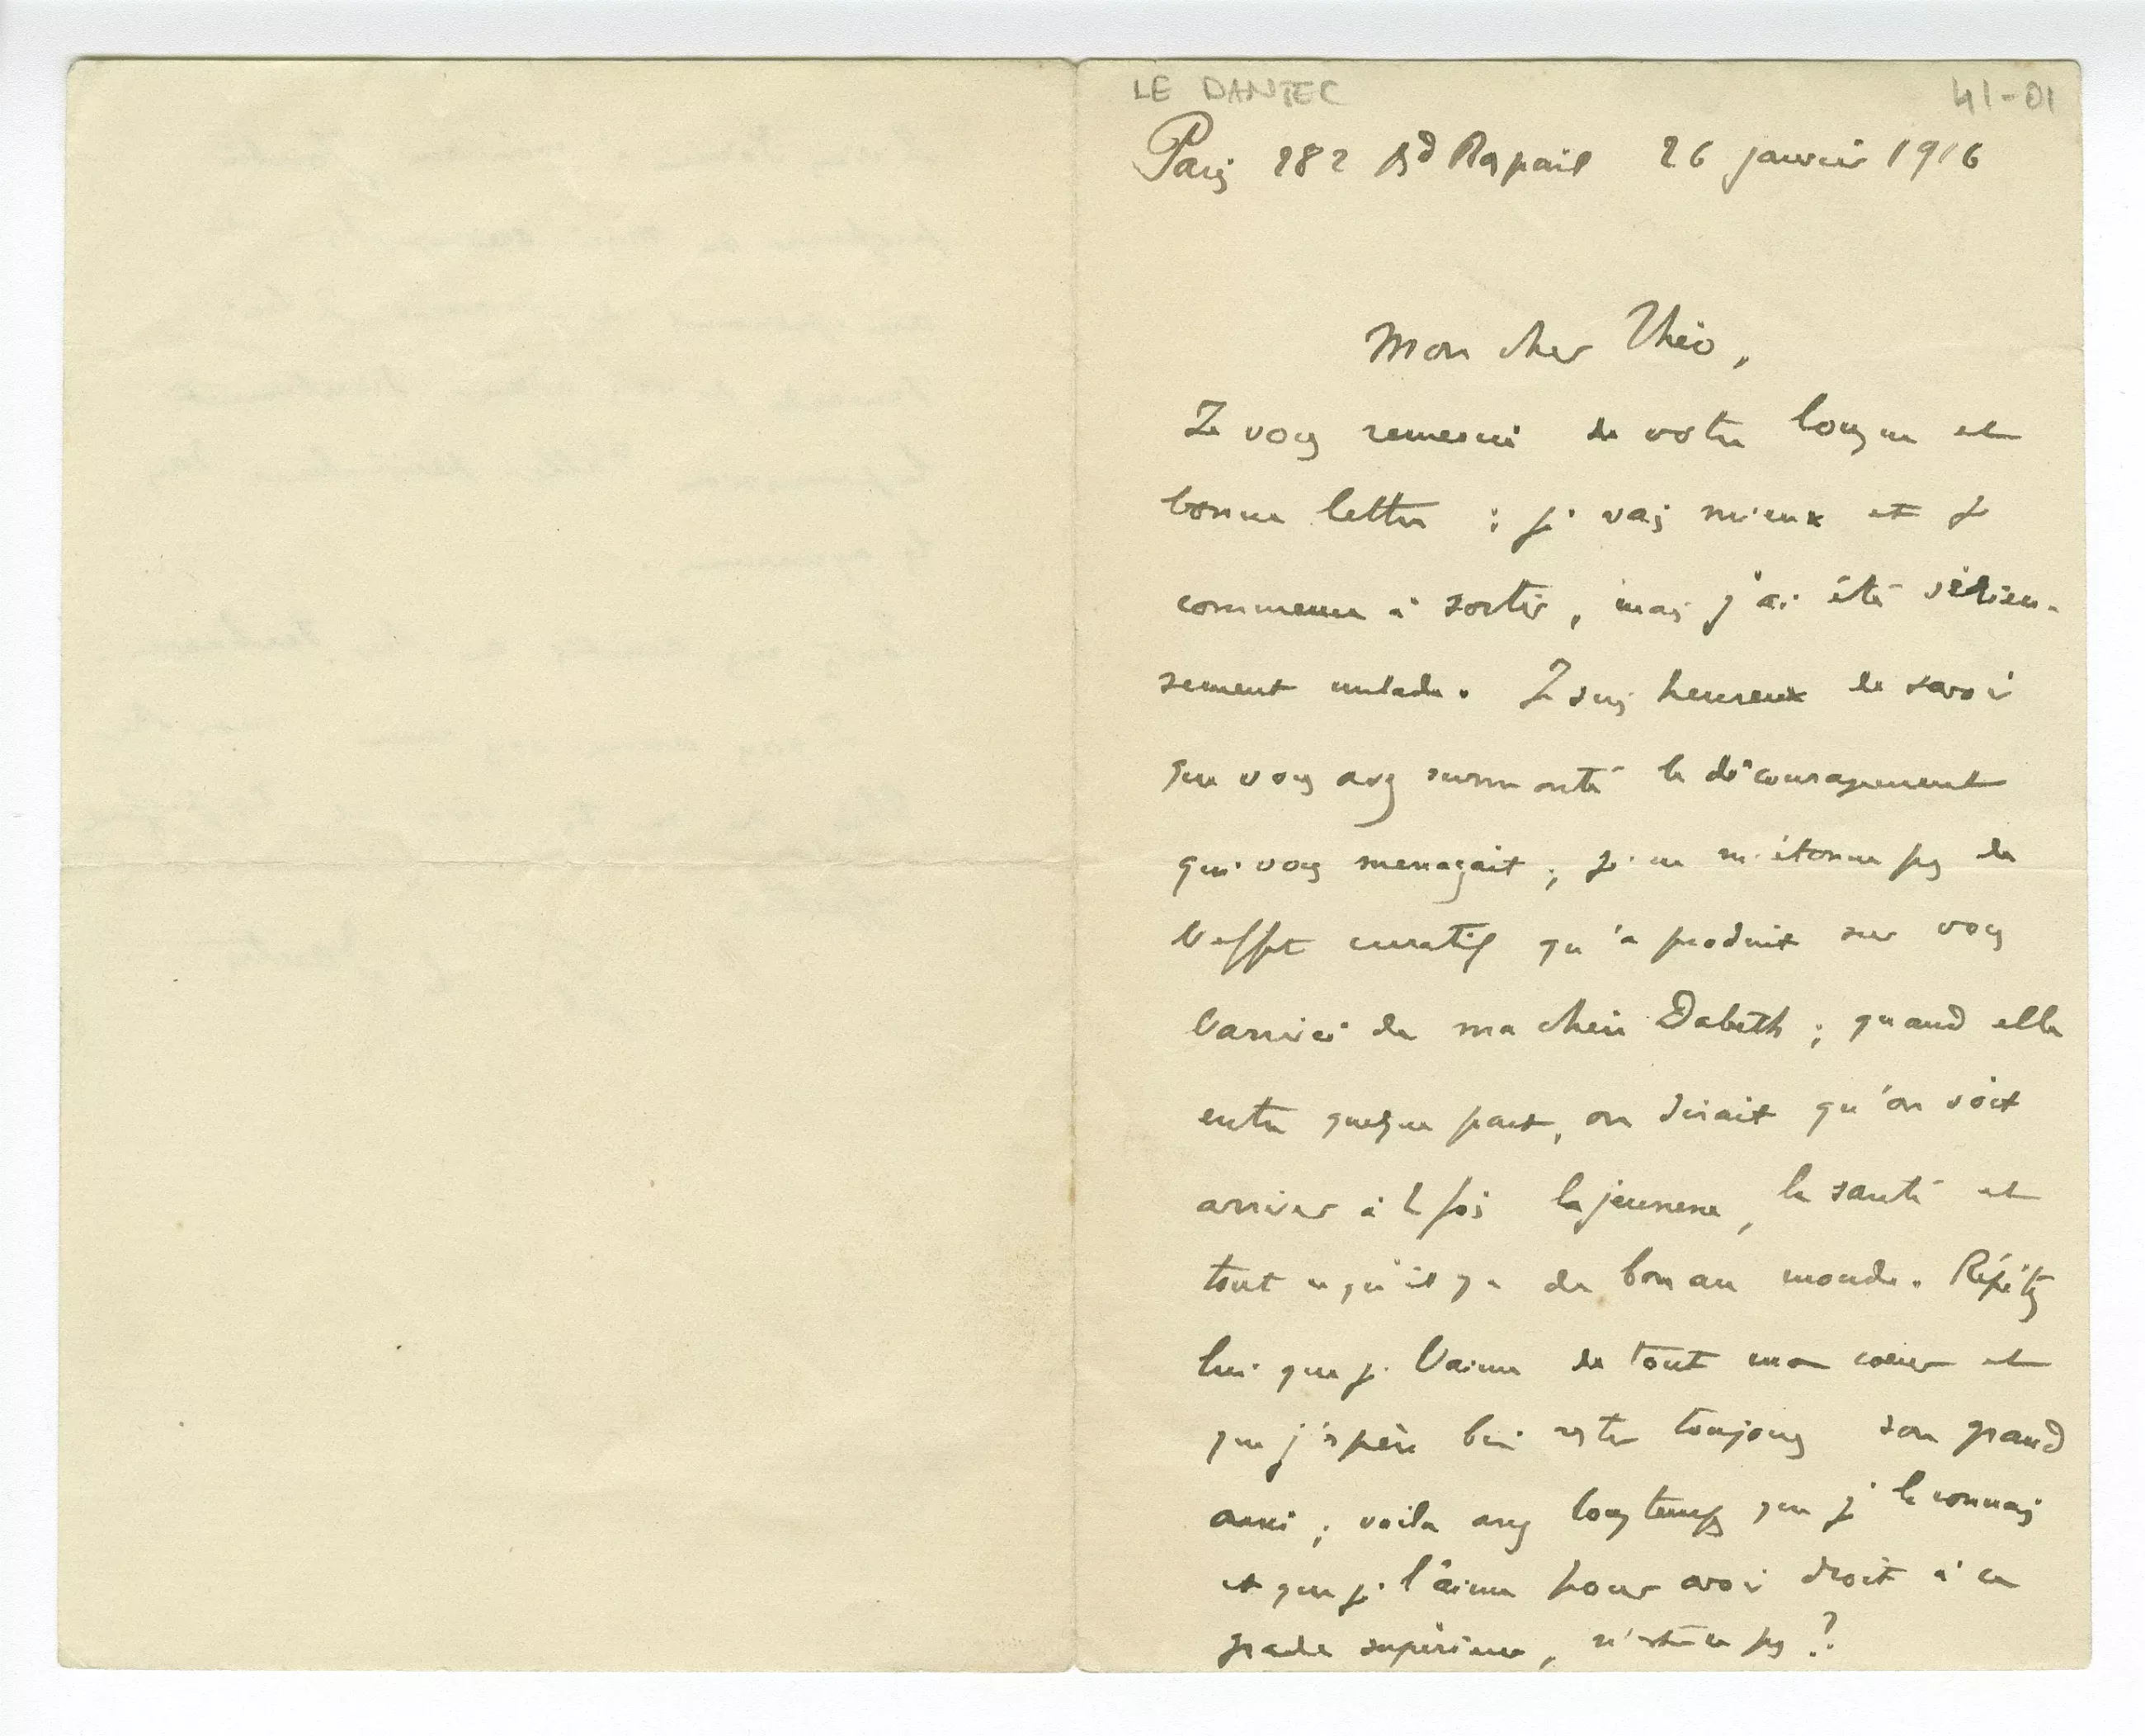 LE DANTEC
41-01
Paris 282 Bd Raspail 26 janvier 1916
Mon cher Théo,
Je vous remercie de votre longue et
bonne lettre ; je vais mieux et je
commence à sortir, mais j'ai été sérieu-
sement malade. Je suis heureux de savoir
que vous avez surmonté le découragement
qui vous menaçait ; je ne m'étonne pas de
l'effet curatif qu'a produit sur vous
l'arrivée de ma chère Babeth ; quand elle
entre quelque part, on dirait qu'on voit
arriver à la fois la jeunesse, la santé et
tout ce qu'il y a de bon au monde. Répétez
lui que je l'aime de tout mon cœur et
que j'espère bien rester toujours son grand
ami ; voilà assez longtemps que je la connais
et que je l'aime pour avoir droit à ce
grade supérieur, n'est-ce pas ?